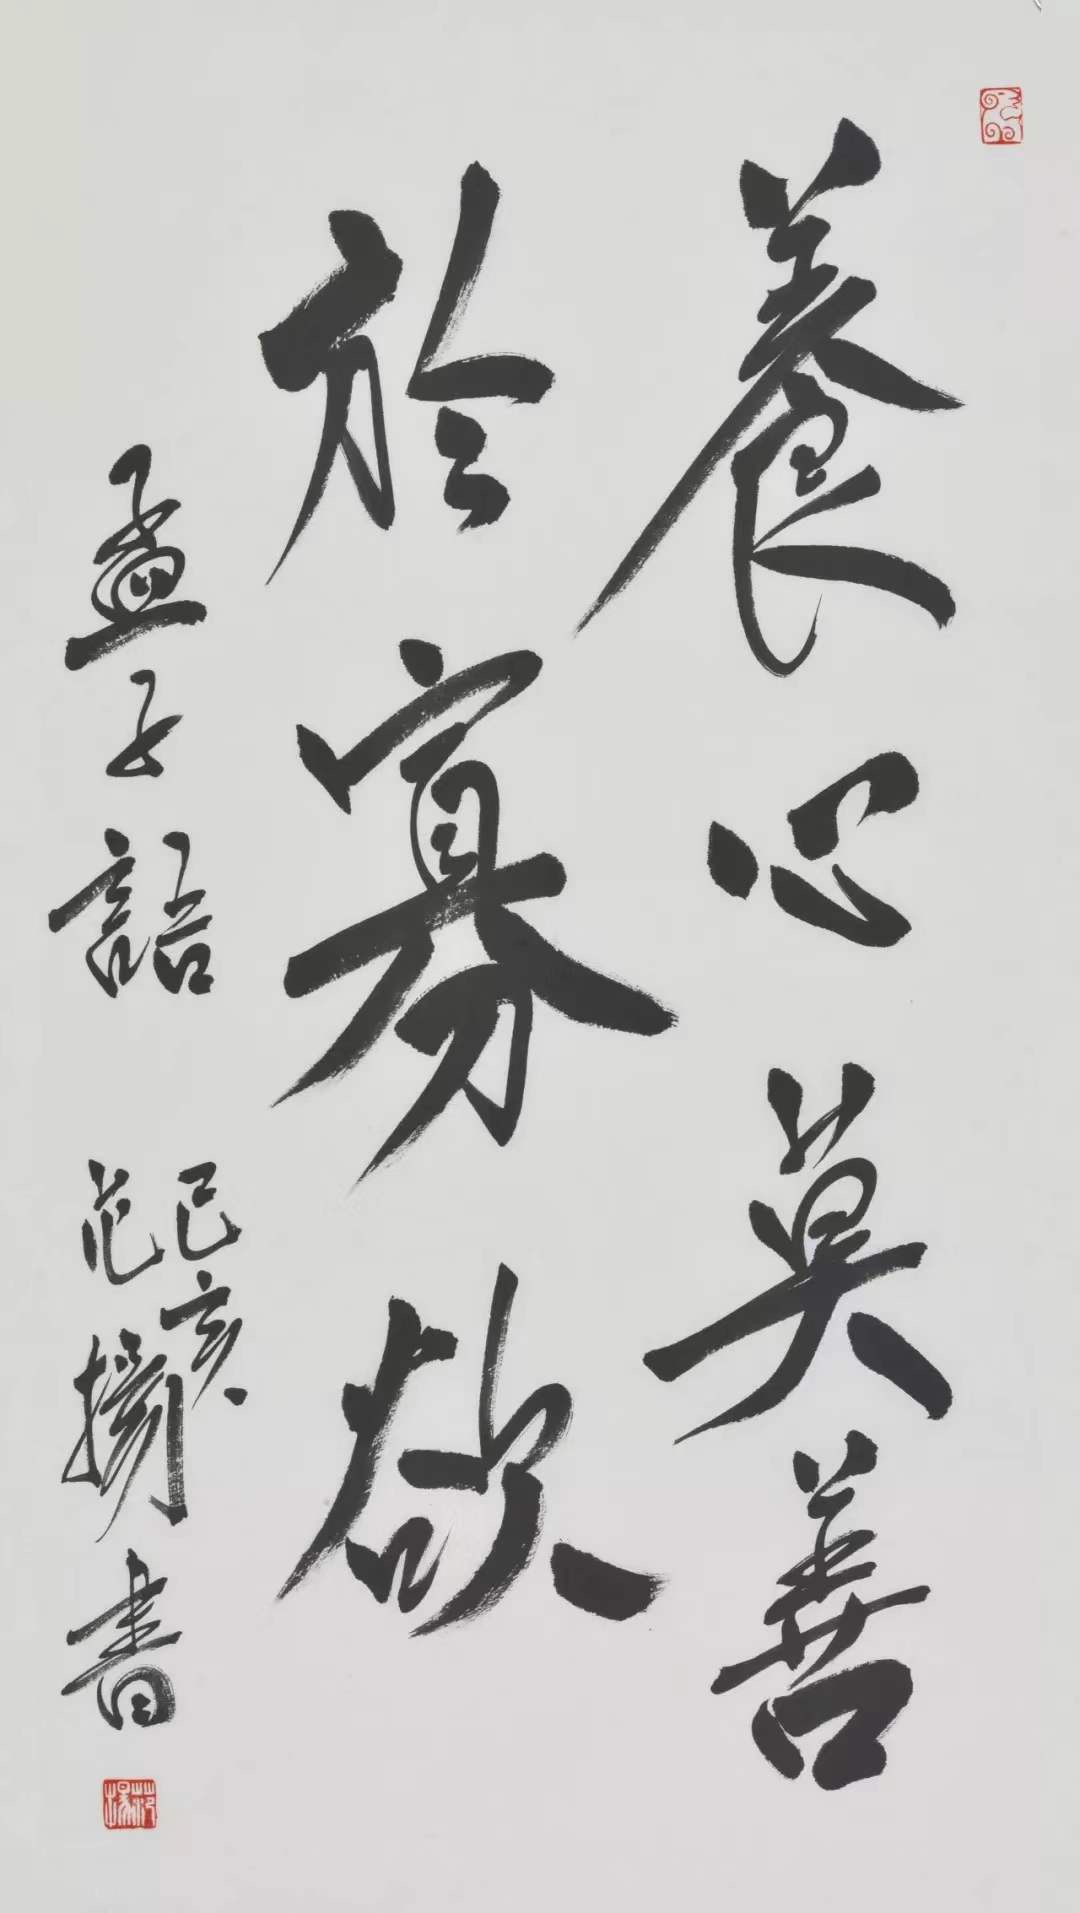 養心莫善
於寡欲
孟子語
己亥
范揚書
范揚